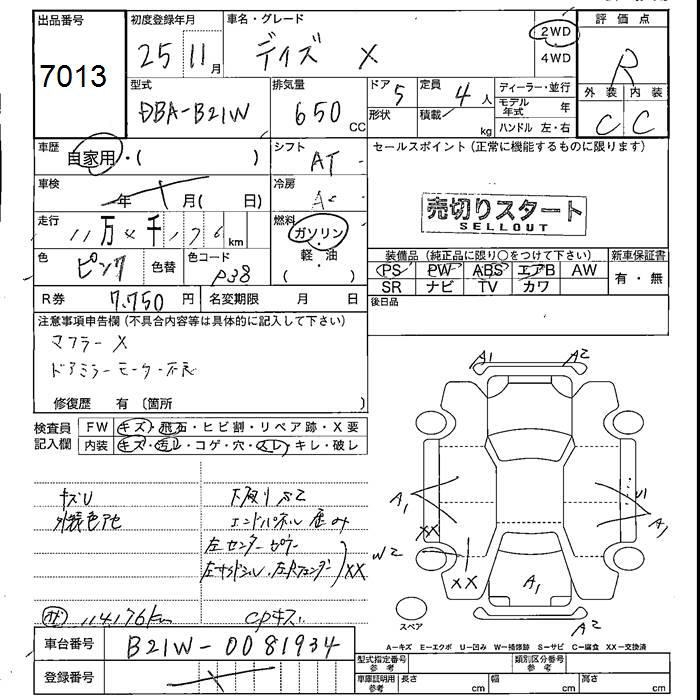 出品番号 初度登録年月 車名・グレード 2WD 評価点
7013 25 11月 デイズ X 4WD R
型式 排気量 ドア 5 定員 4人 ディーラー・並行 外装 内装
DBA-B21W 650 CC 形状 積載 kg モデル年式 年 C C
ハンドル 左・右
車歴 自家用・( ) シフト AT セールスポイント (正常に機能するものに限ります)
車検 年 月( 日) 冷房 AC
売切りスタート
SELLOUT
走行 11万4千176km 燃料 ガソリン・軽油 ( )
装備品 (純正品に限り○をつけて下さい) 新車保証書
色 ピンク 色替 色コード P38
PS PW ABS エアB AW 有・無
SR ナビ TV カワ
R券 7,750円 名変期限 月 日 後日品
注意事項申告欄 (不具合内容等は具体的に記入して下さい)
マフラー X
ドアミラーモーター不良
修復歴 有 〔箇所 〕
検査員記入欄 FW キズ・飛石・ヒビ割・リペア跡・X要
内装 キズ・汚レ・コゲ・穴・スレ・キレ・破レ
キズU
外装色アセ エンドパネル歪み
左センターピラー
XX
114176km
車台番号 B21W-0081934
登録番号
A1 A2
A1 U1 A1
XX
W2
XX A1
A2
スペア
A－キズ E－エクボ U－凹み W－補修跡 S－サビ C－腐食 XX－交換済
型式指定番号 参考 類別区分番号 参考
車庫証明用 参考 長さ cm 幅 cm 高さ cm